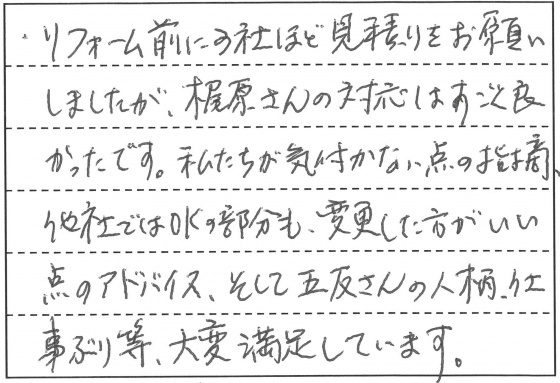 ・リフォーム前に3社ほど見積りをお願い
しましたが、梶原さんの対応はすごく良
かったです。私たちが気付かない点の指摘、
他社ではOKの部分も、変更した方がいい
点のアドバイス、そして五反さんの人柄、仕
事ぶり等、大変満足しています。